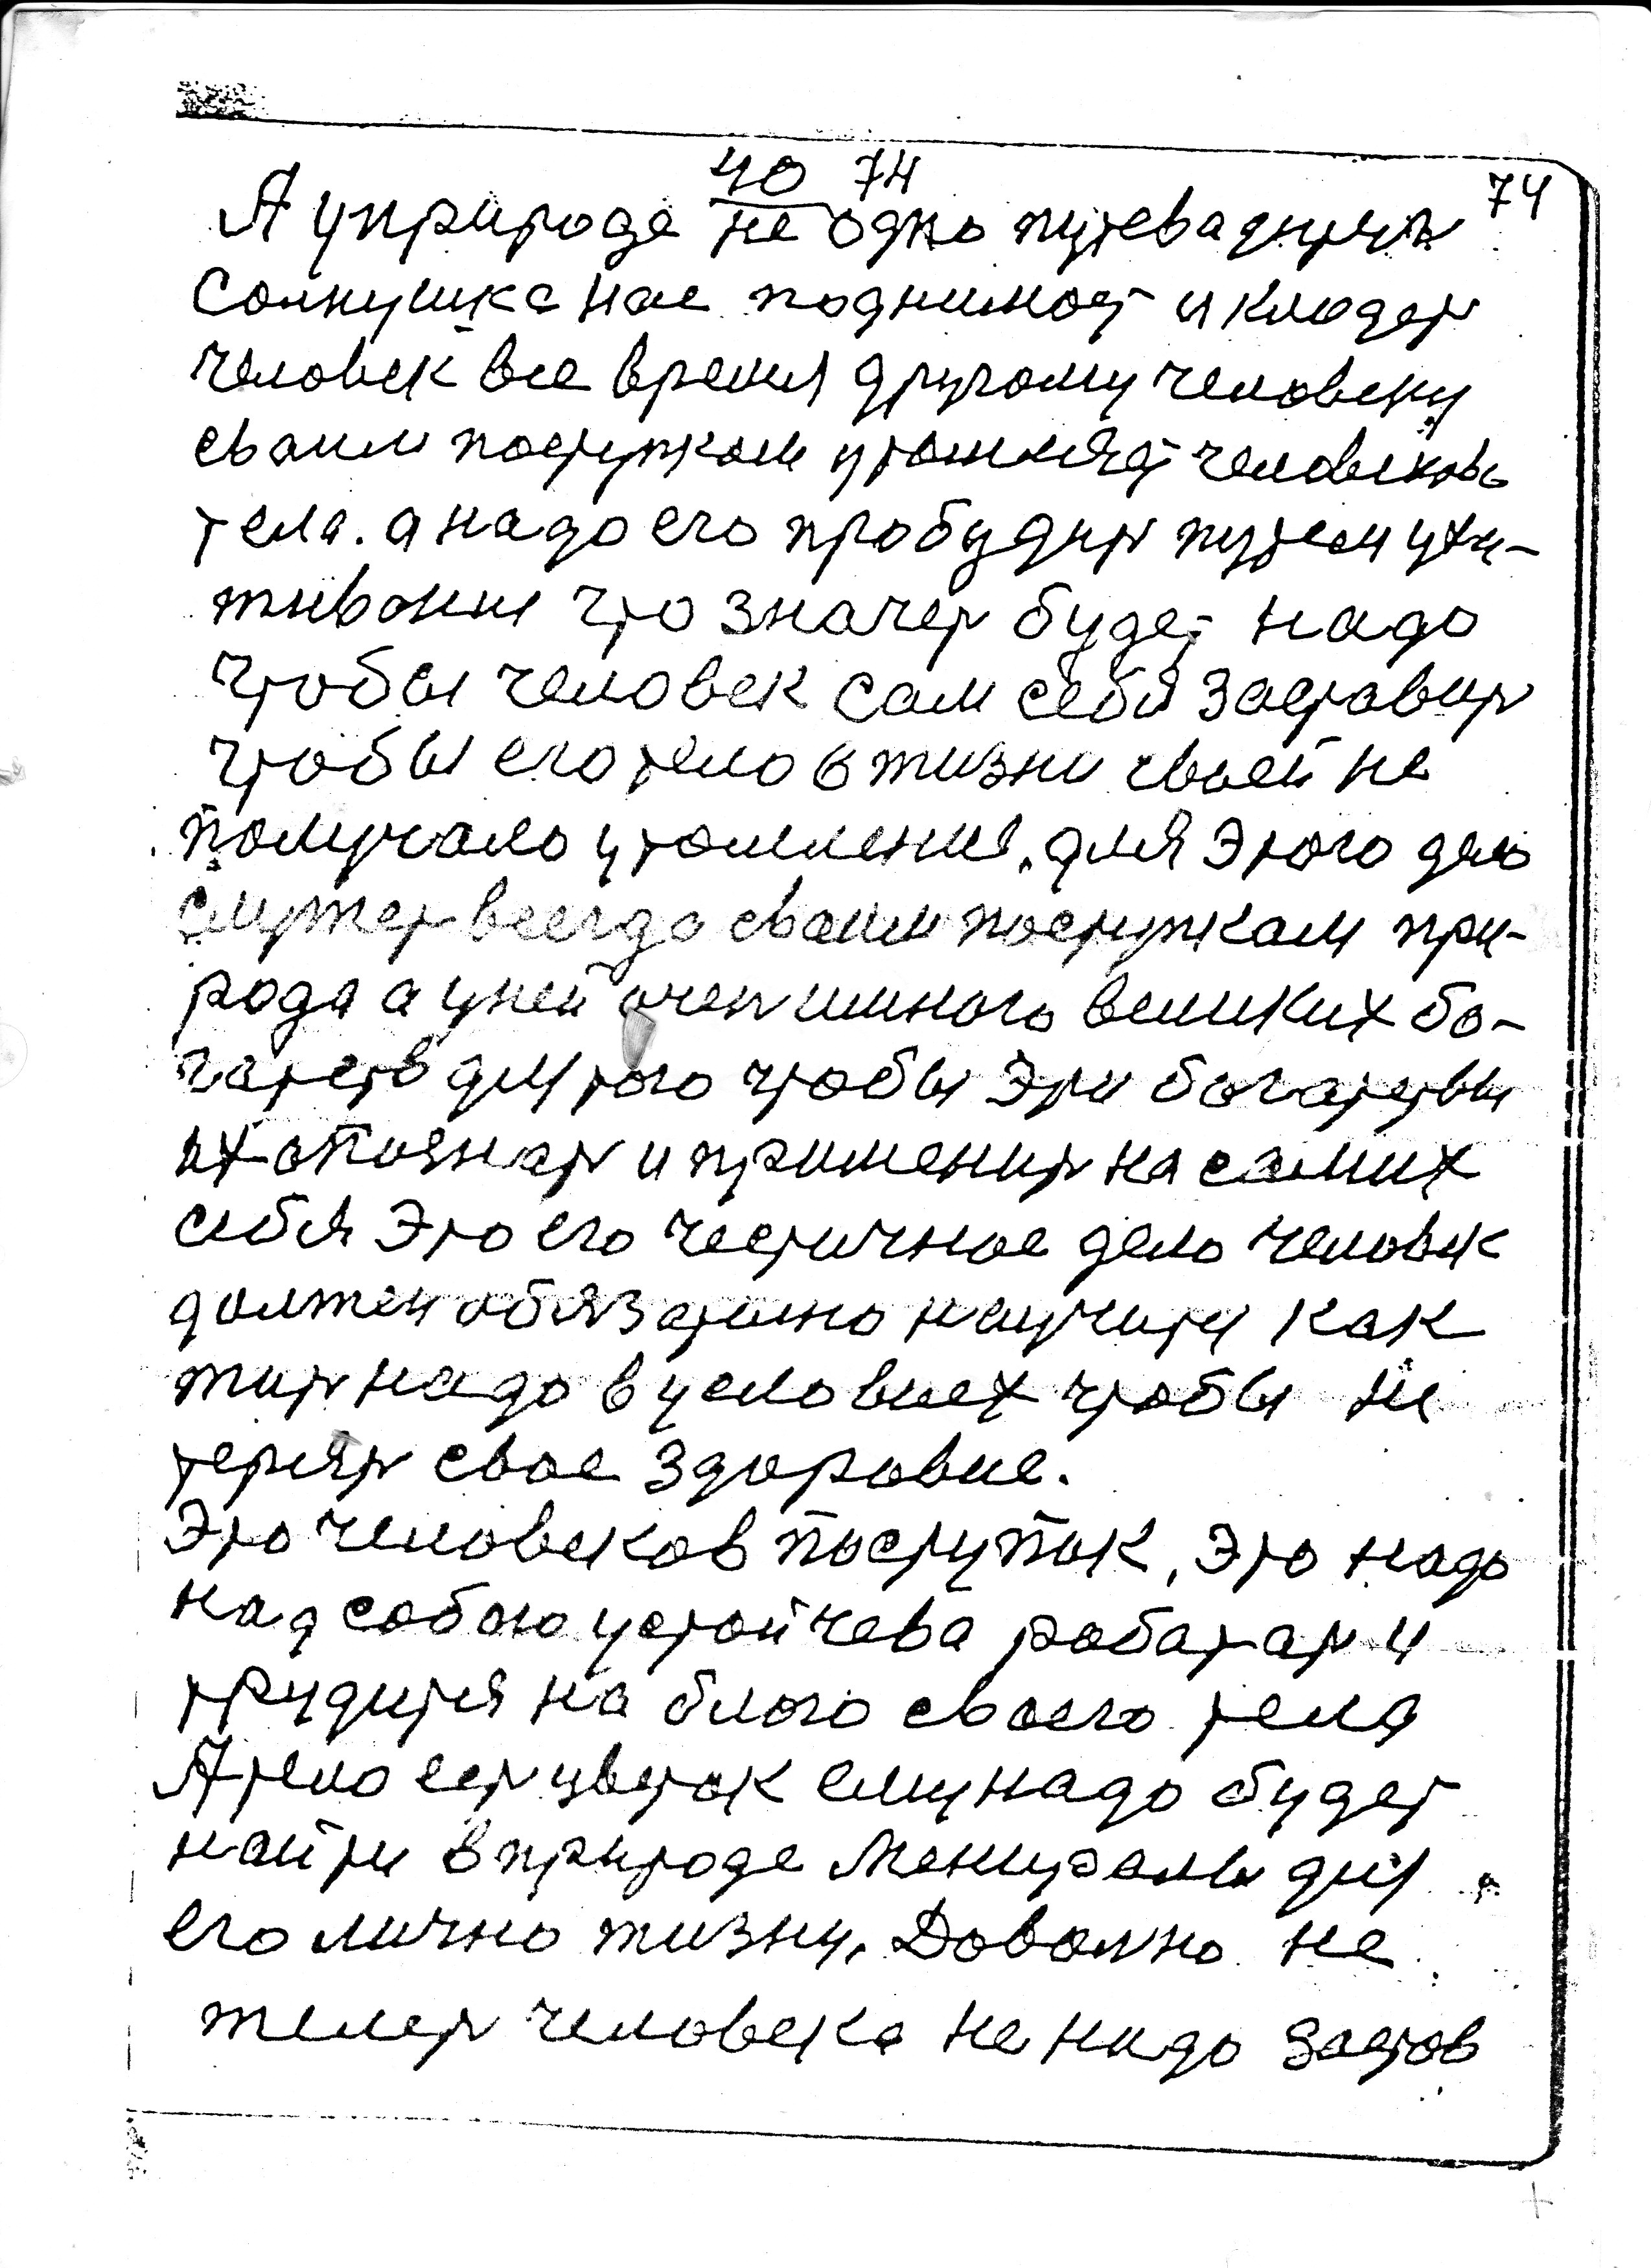 40 74
74
А у природе не одно путеваднтяя
Солнушка нас поднимает и кладет
человек все время другому человеку
сваим поступкам утомляет человекова
тела. а надо его пробудит путем ухи-
живания что значет будет надо
чтобы человек сам себя заставит
чтобы его тело в жизни своей не
получало утомление, для этого дело
служет всегда сваим поступкам при-
рода а у ней очен много великих бо-
гатств для того чтобы эти богатствы
их опознат и применит на самих
себя Это его честичное дело человек
должен обязателно научити как
жит надо в условиех чтобы не
терят свое здоровие.
Это человеков поступок, Это надо
над собою устойчева работат и
трудится на благо своего тела
А тело ест цветок ему надо будет
найти в природе Менирали для
его лично жизни. Доволно не
жалет человека не надо застав